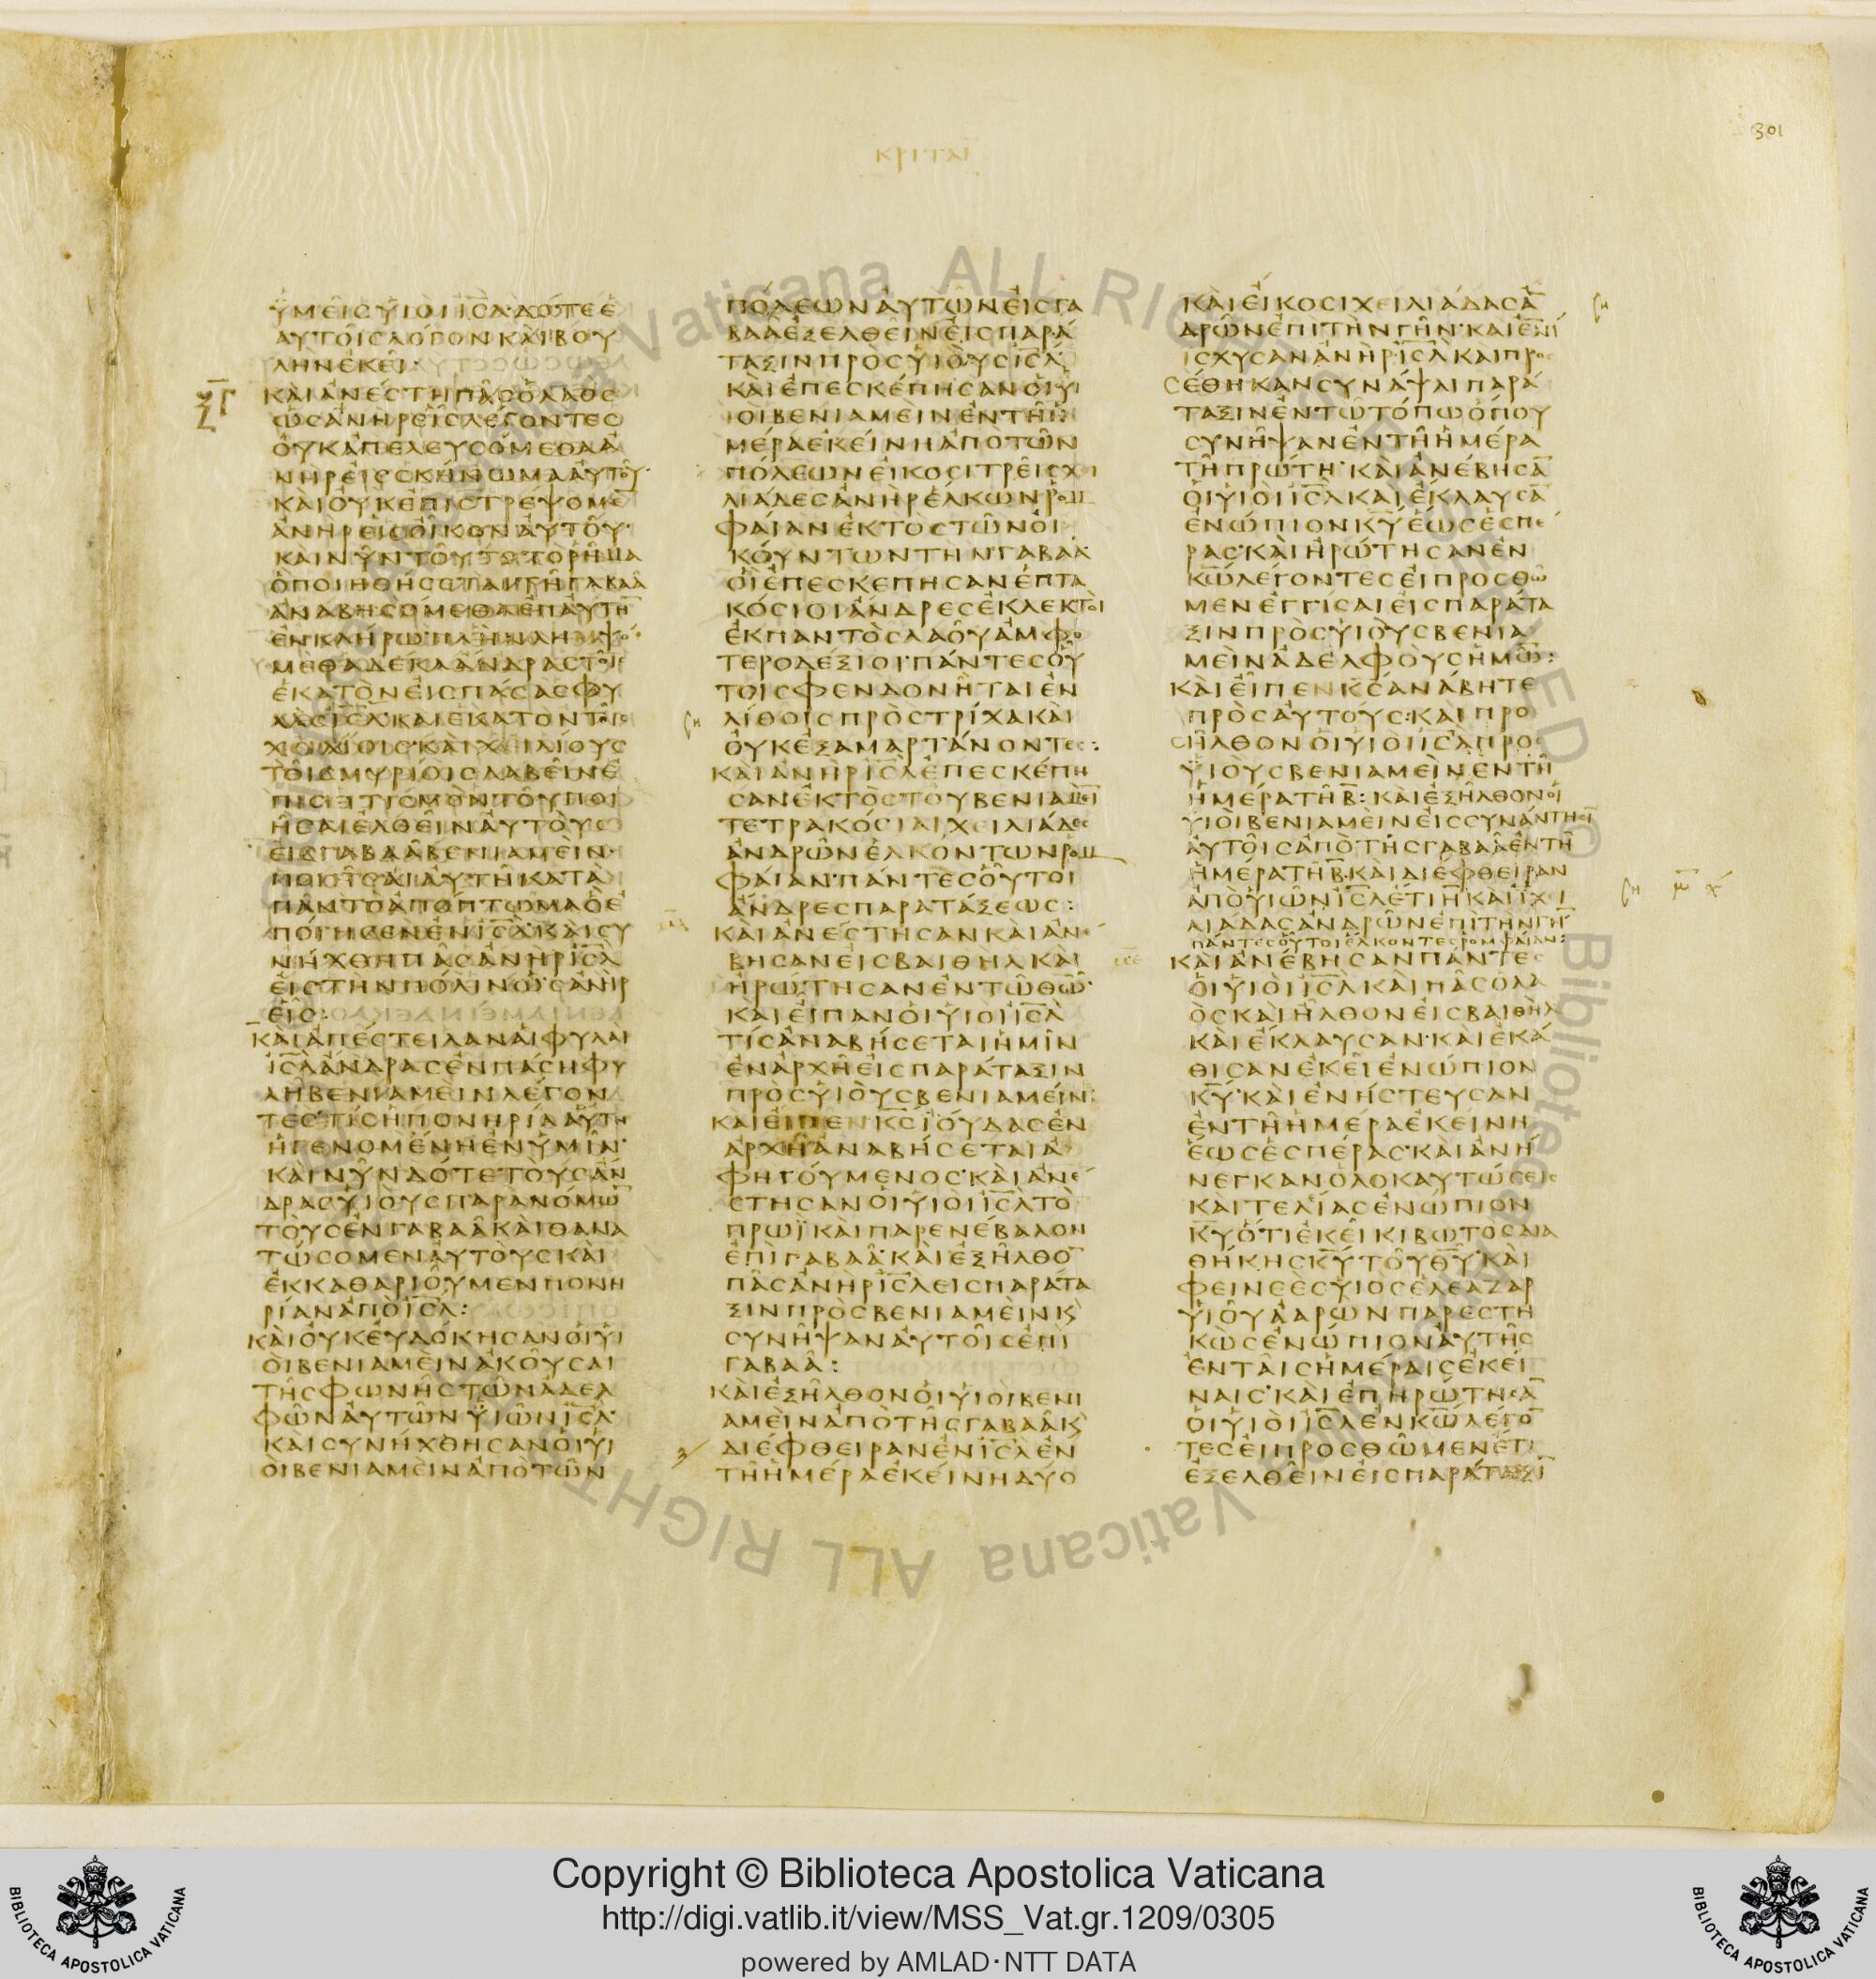 301
ΚΡΙΤΑΙ
ΥΜΕΙΣ ΥΙΟΙ ΙΣΛ ΔΟΤΕ Ε
ΑΥΤΟΙΣ ΛΟΓΟΝ ΚΑΙ ΒΟΥ
ΛΗΝ ΕΚΕΙ:
ΞΓ
ΚΑΙ ΑΝΕΣΤΗ ΠΑΣ Ο ΛΑΟΣ
ΩΣ ΑΝΗΡ ΕΙΣ ΛΕΓΟΝΤΕΣ
ΟΥΚ ΑΠΕΛΕΥΣΟΜΕΘΑ Α
ΝΗΡ ΕΙΣ ΣΚΗΝΩΜΑ ΑΥΤΟΥ·
ΚΑΙ ΟΥΚ ΕΠΙΣΤΡΕΨΟΜΕ̅
ΑΝΗΡ ΕΙΣ ΟΙΚΟΝ ΑΥΤΟΥ·
ΚΑΙ ΝΥΝ ΤΟΥΤΟ ΤΟ ΡΗΜΑ
Ο ΠΟΙΗΘΗΣΕΤΑΙ ΤΗ ΓΑΒΑΑ
ΑΝΑΒΗΣΟΜΕΘΑ ΕΠ ΑΥΤΗ̅
ΕΝ ΚΛΗΡΩ· ΠΛΗΝ ΛΗΨΟ
ΜΕΘΑ ΔΕΚΑ ΑΝΔΡΑΣ ΤΟΙΣ
ΕΚΑΤΟΝ ΕΙΣ ΠΑΣΑΣ ΦΥ
ΛΑΣ ΙΣΛ· ΚΑΙ ΕΚΑΤΟΝ ΤΟΙΣ
ΧΕΙΛΙΟΙΣ· ΚΑΙ ΧΕΙΛΙΟΥΣ
ΤΟΙΣ ΜΥΡΙΟΙΣ ΛΑΒΕΙΝ Ε
ΠΙΣΙΤΙΣΜΟΝ ΤΟΥ ΠΟΙ
ΗΣΑΙ ΕΛΘΕΙΝ ΑΥΤΟΥΣ
ΕΙΣ ΓΑΒΑΑ ΒΕΝΙΑΜΕΙΝ·
ΠΟΙΗΣΑΙ ΑΥΤΗ ΚΑΤΑ
ΠΑΝ ΤΟ ΑΠΟΠΤΩΜΑ Ο Ε
ΠΟΙΗΣΕΝ ΕΝ ΙΣΛ· ΚΑΙ ΣΥ
ΝΗΧΘΗ ΠΑΣ ΑΝΗΡ ΙΣΛ
ΕΙΣ ΤΗΝ ΠΟΛΙΝ ΩΣ ΑΝΗΡ
ΕΙΣ:
ΚΑΙ ΑΠΕΣΤΕΙΛΑΝ ΑΙ ΦΥΛΑΙ
ΙΣΛ ΑΝΔΡΑΣ ΕΝ ΠΑΣΗ ΦΥ
ΛΗ ΒΕΝΙΑΜΕΙΝ ΛΕΓΟΝ
ΤΕΣ· ΤΙΣ Η ΠΟΝΗΡΙΑ ΑΥΤΗ
Η ΓΕΝΟΜΕΝΗ ΕΝ ΥΜΙΝ·
ΚΑΙ ΝΥΝ ΔΟΤΕ ΤΟΥΣ ΑΝ
ΔΡΑΣ ΥΙΟΥΣ ΠΑΡΑΝΟΜΩ̅
ΤΟΥΣ ΕΝ ΓΑΒΑΑ ΚΑΙ ΘΑΝΑ
ΤΩΣΟΜΕΝ ΑΥΤΟΥΣ ΚΑΙ
ΕΚΚΑΘΑΡΙΟΥΜΕΝ ΠΟΝΗ
ΡΙΑΝ ΑΠΟ ΙΣΛ:
ΚΑΙ ΟΥΚ ΕΥΔΟΚΗΣΑΝ ΟΙ ΥΙ
ΟΙ ΒΕΝΙΑΜΕΙΝ ΑΚΟΥΣΑΙ
ΤΗΣ ΦΩΝΗΣ ΤΩΝ ΑΔΕΛ
ΦΩΝ ΑΥΤΩΝ ΥΙΩΝ ΙΣΛ·
ΚΑΙ ΣΥΝΗΧΘΗΣΑΝ ΟΙ ΥΙ
ΟΙ ΒΕΝΙΑΜΕΙΝ ΑΠΟ ΤΩΝ
ΠΟΛΕΩΝ ΑΥΤΩΝ ΕΙΣ ΓΑ
ΒΑΑ ΕΞΕΛΘΕΙΝ ΕΙΣ ΠΑΡΑ
ΤΑΞΙΝ ΠΡΟΣ ΥΙΟΥΣ ΙΣΛ
ΚΑΙ ΕΠΕΣΚΕΠΗΣΑΝ ΟΙ ΥΙ
ΟΙ ΒΕΝΙΑΜΕΙΝ ΕΝ ΤΗ Η
ΜΕΡΑ ΕΚΕΙΝΗ ΑΠΟ ΤΩΝ
ΠΟΛΕΩΝ ΕΙΚΟΣΙ ΤΡΕΙΣ ΧΙ
ΛΙΑΔΕΣ ΑΝΗΡ ΕΛΚΩΝ ΡΟΜ
ΦΑΙΑΝ ΕΚΤΟΣ ΤΩΝ ΟΙ
ΚΟΥΝΤΩΝ ΤΗΝ ΓΑΒΑΑ
ΟΙ ΕΠΕΣΚΕΠΗΣΑΝ ΕΠΤΑ
ΚΟΣΙΟΙ ΑΝΔΡΕΣ ΕΚΛΕΚΤΟΙ
ΕΚ ΠΑΝΤΟΣ ΛΑΟΥ ΑΜΦΟ
ΤΕΡΟΔΕΞΙΟΙ· ΠΑΝΤΕΣ ΟΥ
ΤΟΙ ΣΦΕΝΔΟΝΗΤΑΙ ΕΝ
ΛΙΘΟΙΣ ΠΡΟΣ ΤΡΙΧΑ ΚΑΙ
ΟΥΚ ΕΞΑΜΑΡΤΑΝΟΝΤΕΣ:
ΚΑΙ ΑΝΗΡ ΙΣΛ ΕΠΕΣΚΕΠΗ
ΣΑΝ ΕΚΤΟΣ ΤΟΥ ΒΕΝΙΑΜΕΙ̅
ΤΕΤΡΑΚΟΣΙΑΙ ΧΕΙΛΙΑΔΕΣ
ΑΝΔΡΩΝ ΕΛΚΟΝΤΩΝ ΡΟΜ
ΦΑΙΑΝ· ΠΑΝΤΕΣ ΟΥΤΟΙ
ΑΝΔΡΕΣ ΠΑΡΑΤΑΞΕΩΣ:
ΚΑΙ ΑΝΕΣΤΗΣΑΝ ΚΑΙ ΑΝΕ
ΒΗΣΑΝ ΕΙΣ ΒΑΙΘΗΛ ΚΑΙ
ΗΡΩΤΗΣΑΝ ΕΝ ΤΩ ΘΩ·
ΚΑΙ ΕΙΠΑΝ ΟΙ ΥΙΟΙ ΙΣΛ
ΤΙΣ ΑΝΑΒΗΣΕΤΑΙ ΗΜΙΝ
ΕΝ ΑΡΧΗ ΕΙΣ ΠΑΡΑΤΑΞΙΝ
ΠΡΟΣ ΥΙΟΥΣ ΒΕΝΙΑΜΕΙΝ:
ΚΑΙ ΕΙΠΕΝ ΚΣ ΙΟΥΔΑΣ ΕΝ
ΑΡΧΗ ΑΝΑΒΗΣΕΤΑΙ Α
ΦΗΓΟΥΜΕΝΟΣ· ΚΑΙ ΑΝΕ
ΣΤΗΣΑΝ ΟΙ ΥΙΟΙ ΙΣΛ ΤΟ
ΠΡΩΙ ΚΑΙ ΠΑΡΕΝΕΒΑΛΟΝ
ΕΠΙ ΓΑΒΑΑ· ΚΑΙ ΕΞΗΛΘΟ̅
ΠΑΣ ΑΝΗΡ ΙΣΛ ΕΙΣ ΠΑΡΑΤΑ
ΞΙΝ ΠΡΟΣ ΒΕΝΙΑΜΕΙΝ Κ
ΣΥΝΗΨΑΝ ΑΥΤΟΙΣ ΕΠΙ
ΓΑΒΑΑ:
ΚΑΙ ΕΞΗΛΘΟΝ ΟΙ ΥΙΟΙ ΒΕΝΙ
ΑΜΕΙΝ ΑΠΟ ΤΗΣ ΓΑΒΑΑ Κ
ΔΙΕΦΘΕΙΡΑΝ ΕΝ ΙΣΛ ΕΝ
ΤΗ ΗΜΕΡΑ ΕΚΕΙΝΗ ΔΥΟ
ΚΑΙ ΕΙΚΟΣΙ ΧΕΙΛΙΑΔΑΣ Α̅
ΔΡΩΝ ΕΠΙ ΤΗΝ ΓΗΝ· ΚΑΙ ΕΝΙ
ΣΧΥΣΑΝ ΑΝΗΡ ΙΣΛ ΚΑΙ ΠΡΟ
ΣΕΘΗΚΑΝ ΣΥΝΑΨΑΙ ΠΑΡΑ
ΤΑΞΙΝ ΕΝ ΤΩ ΤΟΠΩ ΟΠΟΥ
ΣΥΝΗΨΑΝ ΕΝ ΤΗ ΗΜΕΡΑ
ΤΗ ΠΡΩΤΗ· ΚΑΙ ΑΝΕΒΗΣΑ̅
ΟΙ ΥΙΟΙ ΙΣΛ ΚΑΙ ΕΚΛΑΥΣΑ̅
ΕΝΩΠΙΟΝ ΚΥ ΕΩΣ ΕΣΠΕ
ΡΑΣ· ΚΑΙ ΗΡΩΤΗΣΑΝ ΕΝ
ΚΩ ΛΕΓΟΝΤΕΣ ΕΙ ΠΡΟΣΘΩ
ΜΕΝ ΕΓΓΙΣΑΙ ΕΙΣ ΠΑΡΑΤΑ
ΞΙΝ ΠΡΟΣ ΥΙΟΥΣ ΒΕΝΙΑ
ΜΕΙΝ ΑΔΕΛΦΟΥΣ ΗΜΩ̅:
ΚΑΙ ΕΙΠΕΝ ΚΣ ΑΝΑΒΗΤΕ
ΠΡΟΣ ΑΥΤΟΥΣ: ΚΑΙ ΠΡΟ
ΣΗΛΘΟΝ ΟΙ ΥΙΟΙ ΙΣΛ ΠΡΟΣ
ΥΙΟΥΣ ΒΕΝΙΑΜΕΙΝ ΕΝ ΤΗ
ΗΜΕΡΑ ΤΗ Β: ΚΑΙ ΕΞΗΛΘΟΝ ΟΙ
ΥΙΟΙ ΒΕΝΙΑΜΕΙΝ ΕΙΣ ΣΥΝΑΝΤΗΣΙ̅
ΑΥΤΟΙΣ ΑΠΟ ΤΗΣ ΓΑΒΑΑ ΕΝ ΤΗ
ΗΜΕΡΑ ΤΗ Β· ΚΑΙ ΔΙΕΦΘΕΙΡΑΝ
ΑΠΟ ΥΙΩΝ ΙΣΛ ΕΤΙ ΙΗ ΚΑΙ ΙΧΙ
ΛΙΑΔΑΣ ΑΝΔΡΩΝ ΕΠΙ ΤΗΝ ΓΗ̅
ΠΑΝΤΕΣ ΟΥΤΟΙ ΕΛΚΟΝΤΕΣ ΡΟΜΦΑΙΑΝ:
ΚΑΙ ΑΝΕΒΗΣΑΝ ΠΑΝΤΕΣ
ΟΙ ΥΙΟΙ ΙΣΛ ΚΑΙ ΠΑΣ Ο ΛΑ
ΟΣ ΚΑΙ ΗΛΘΟΝ ΕΙΣ ΒΑΙΘΗΛ
ΚΑΙ ΕΚΛΑΥΣΑΝ· ΚΑΙ ΕΚΑ
ΘΙΣΑΝ ΕΚΕΙ ΕΝΩΠΙΟΝ
ΚΥ· ΚΑΙ ΕΝΗΣΤΕΥΣΑΝ
ΕΝ ΤΗ ΗΜΕΡΑ ΕΚΕΙΝΗ
ΕΩΣ ΕΣΠΕΡΑΣ· ΚΑΙ ΑΝΗ
ΝΕΓΚΑΝ ΟΛΟΚΑΥΤΩΣΕΙΣ
ΚΑΙ ΤΕΛΙΑΣ ΕΝΩΠΙΟΝ
ΚΥ ΟΤΙ ΕΚΕΙ ΚΙΒΩΤΟΣ ΔΙΑ
ΘΗΚΗΣ ΚΥ ΤΟΥ ΘΥ· ΚΑΙ
ΦΕΙΝΕΕΣ ΥΙΟΣ ΕΛΕΑΖΑΡ
ΥΙΟΥ ΑΑΡΩΝ ΠΑΡΕΣΤΗ
ΚΩΣ ΕΝΩΠΙΟΝ ΑΥΤΗΣ
ΕΝ ΤΑΙΣ ΗΜΕΡΑΙΣ ΕΚΕΙ
ΝΑΙΣ· ΚΑΙ ΕΠΗΡΩΤΗΣΑ̅
ΟΙ ΥΙΟΙ ΙΣΛ ΕΝ ΚΩ ΛΕΓΟ̅
ΤΕΣ ΕΙ ΠΡΟΣΘΩΜΕΝ ΕΤΙ
ΕΞΕΛΘΕΙΝ ΕΙΣ ΠΑΡΑΤΑΞΙ̅
Vaticana ALL RIGHTS RESERVED © Biblioteca
Vaticana ALL RIGHTS
BIBLIOTECA APOSTOLICA VATICANA
Copyright © Biblioteca Apostolica Vaticana
http://digi.vatlib.it/view/MSS_Vat.gr.1209/0305
powered by AMLAD·NTT DATA
BIBLIOTECA APOSTOLICA VATICANA